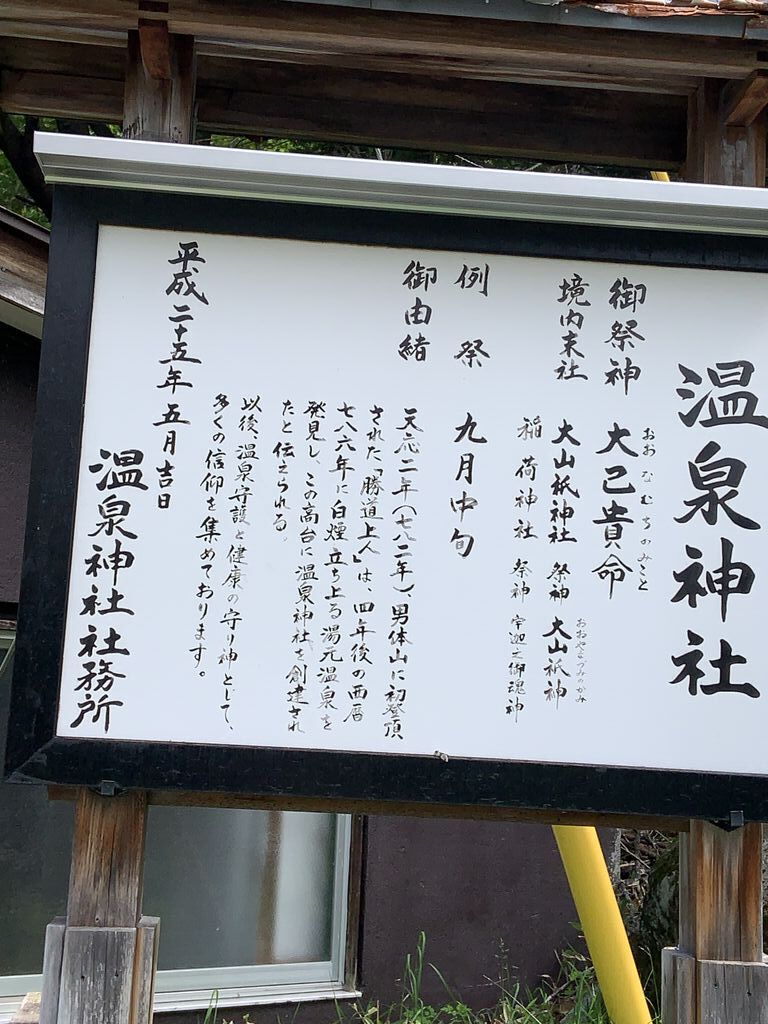 温泉神社
御祭神 大己貴命
おおなむちのみこと
境内末社 大山祇神社 祭神 大山祇神
おおやまづみのかみ
稲荷神社 祭神 宇迦之御魂神
例祭 九月中旬
御由緒
天応二年(七八二年)、男体山に初登頂
された「勝道上人」は、四年後の西暦
七八六年に白煙立ち上る湯元温泉を
発見し、この高台に温泉神社を創建され
たと伝えられる。
以後、温泉守護と健康の守り神として、
多くの信仰を集めております。
平成二十五年五月吉日
温泉神社社務所